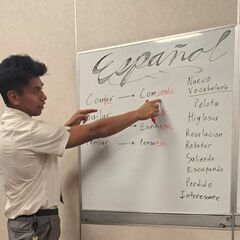 Español
Comer → Comiendo
Escri
Pensar → Pensando
Nuevo
Vocabulario
Pelota
Higlesia
Revelacion
Rebotar
Saliendo
Escapando
Perdido
Interesante